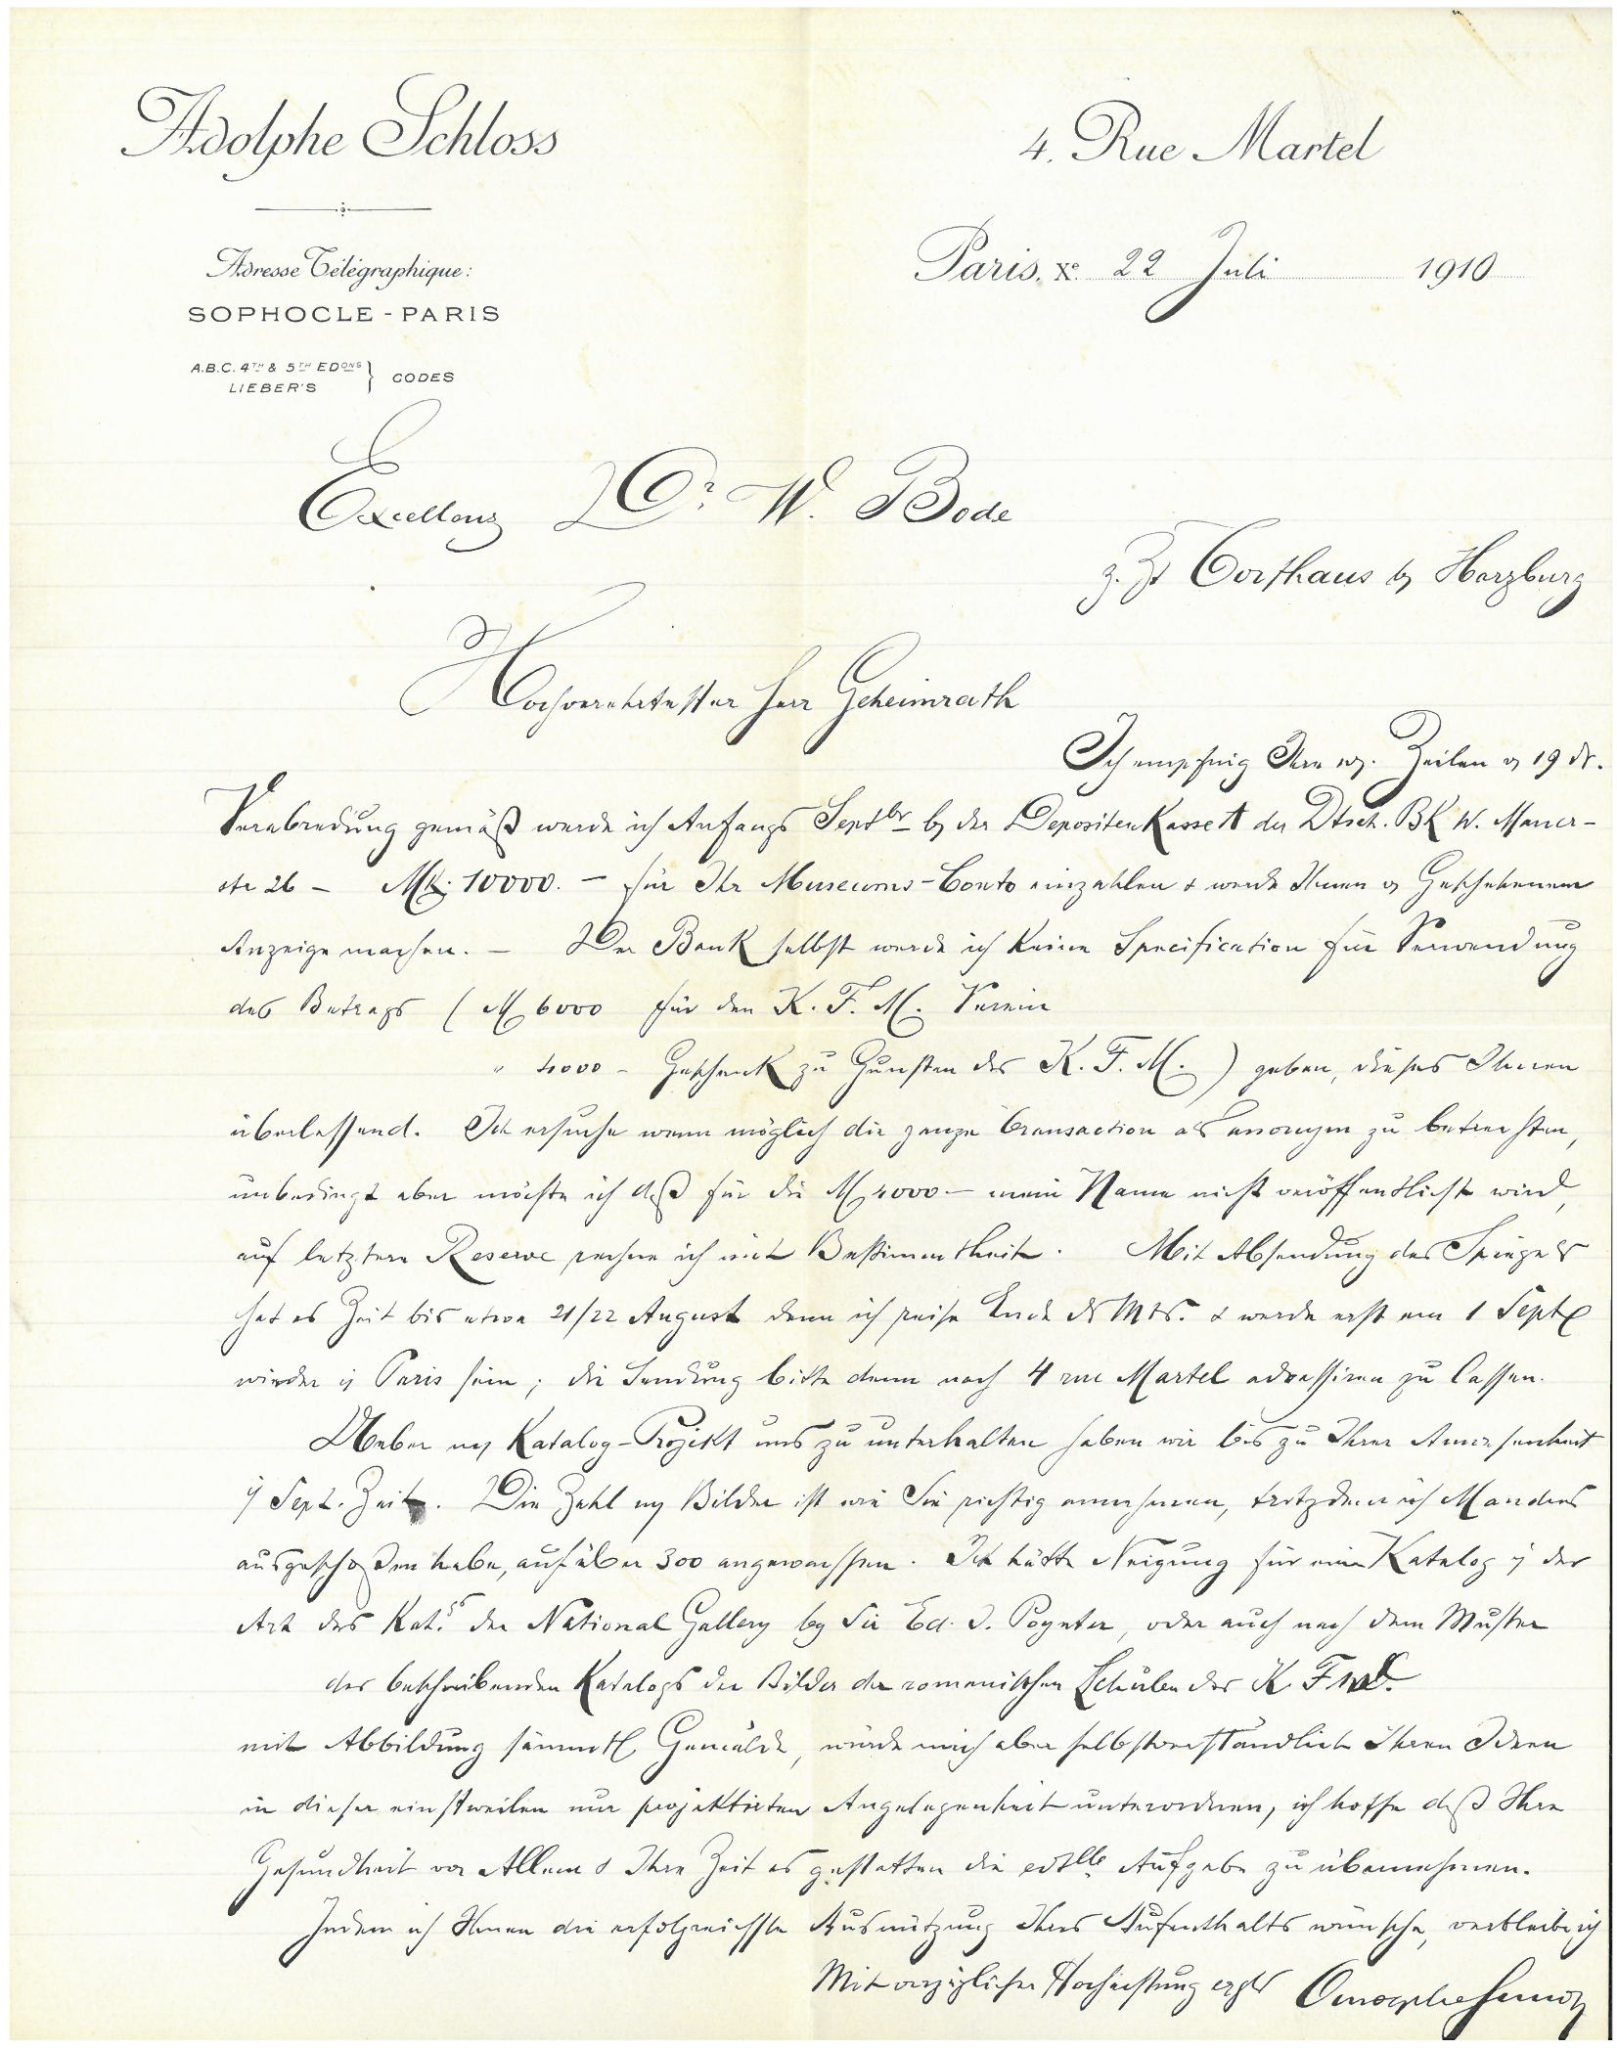 Adolphe Schloss
4, Rue Martel
Adresse Télégraphique:
SOPHOCLE - PARIS
A.B.C. 4TH & 5TH EDONS
LIEBER'S
CODES
Paris, Xe 22 Juli 1910
Excellenz Dr W. Bode
z. Zt Torfhaus b/ Harzburg
Hochverehrtester Herr Geheimrath
Ich empfing Ihre w. Zeilen v 19 ds.
Verabredung gemäß werde ich Anfangs Septbr b/ der Depositenkasse A der Dtsch. Bk W. Mauer-
str 26 – Mk. 10000. – für Ihr Museums-Conto einzahlen & werde Ihnen v Geschehenem
Anzeige machen. – Der Bank selbst werde ich keine Specification für Verwendung
des Betrags ( M 6000 für den K. F. M. Verein
" 4000 – Geschenk zu Gunsten des K. F. M. ) geben, dieses Ihnen
überlassend. Ich ersuche wenn möglich die ganze Transaction als anonym zu betrachten,
unbedingt aber möchte ich daß für die M 4000 – mein Name nicht veröffentlicht wird,
auf letztere Reserve rechne ich mit Bestimmtheit. Mit Absendung des Spiegels
hat es Zeit bis etwa 21/22 August denn ich reise Ende ds Mts. & werde erst am 1 Sept
wieder i/ Paris sein; die Sendung bitte dann nach 4 rue Martel adressiren zu lassen.
Ueber m/ Katalog-Projekt uns zu unterhalten haben wir bis zu Ihrer Anwesenheit
i/ Sept. Zeit. Die Zahl m/ Bilder ist wie Sie richtig annehmen, trotzdem ich Manches
ausgeschoßen habe, auf über 300 angewachsen. Ich hätte Neigung für eine Katalog i/ der
Art des Kat.gs der National Gallery by Sir Ed. J. Poynter, oder auch nach dem Muster
des beschreibenden Katalogs der Bilder der romanischen Schulen des K F M.
mit Abbildung sämmtl Gemälde, würde mich aber selbstverständlich Ihren Ideen
in dieser einstweilen nur projektirten Angelegenheit unterordnen, ich hoffe daß Ihre
Gesundheit vor Allem & Ihre Zeit es gestatten die evtlle Aufgabe zu übernehmen.
Indem ich Ihnen die erfolgreichste Ausnützung Ihres Aufenthalts wünsche, verbleibe ich
Mit vorzüglicher Hochachtung ergbst